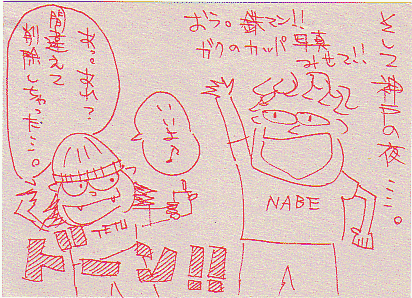 そして神戸の夜…。
おう。鉄マン!!
ガクのカッパ写真
みせて!!
いいよ♪
あっ。あれ?
間違えて
削除しちゃった…。
NABE
ドーン!!